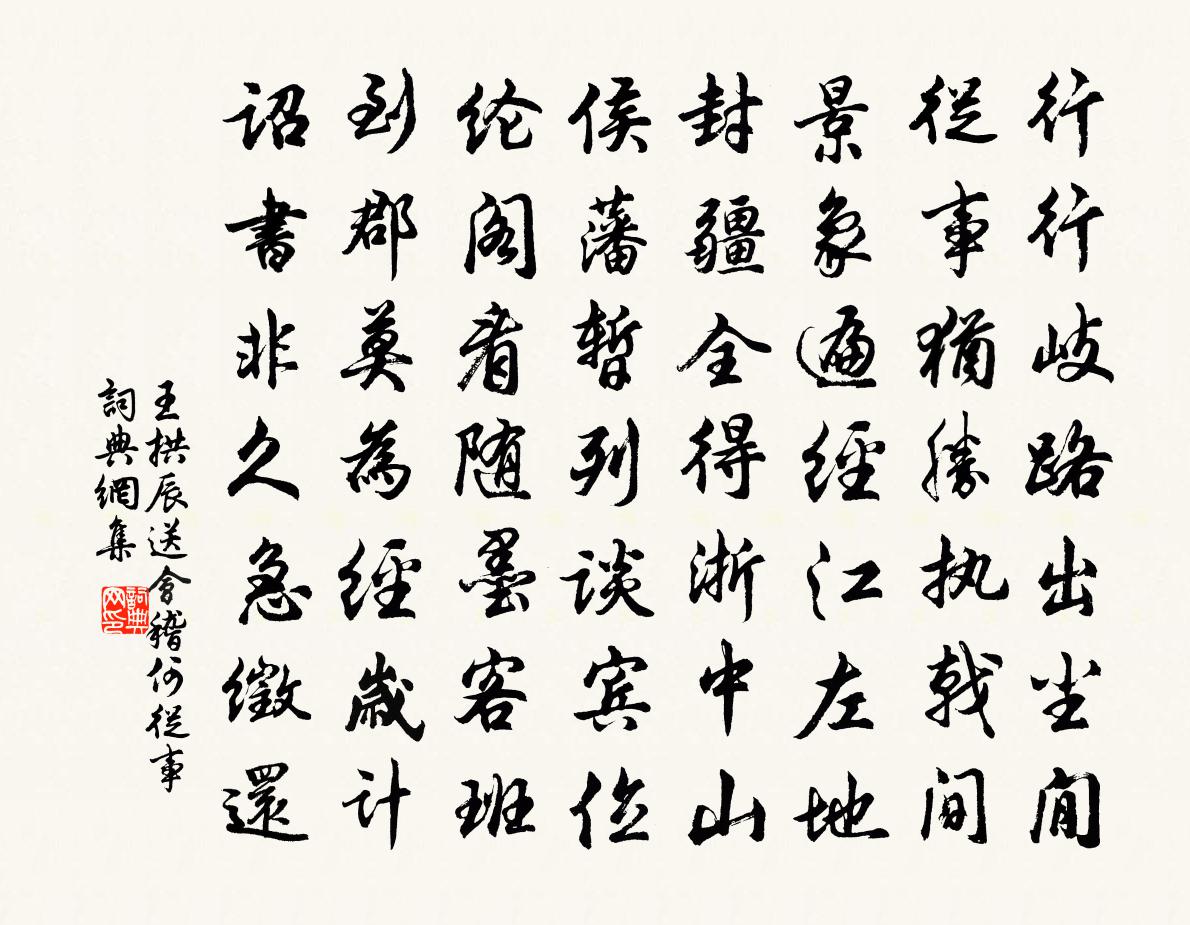 行行岐路出尘閒
從事猶勝执戟间
景象遍經江左地
封疆全得浙中山
侯藩暫列谈宾位
纶阁看随墨客班
到郡莫為經歲计
诏書非久急徵還
王拱辰送會稽何從事
詞典網集
詞典网印